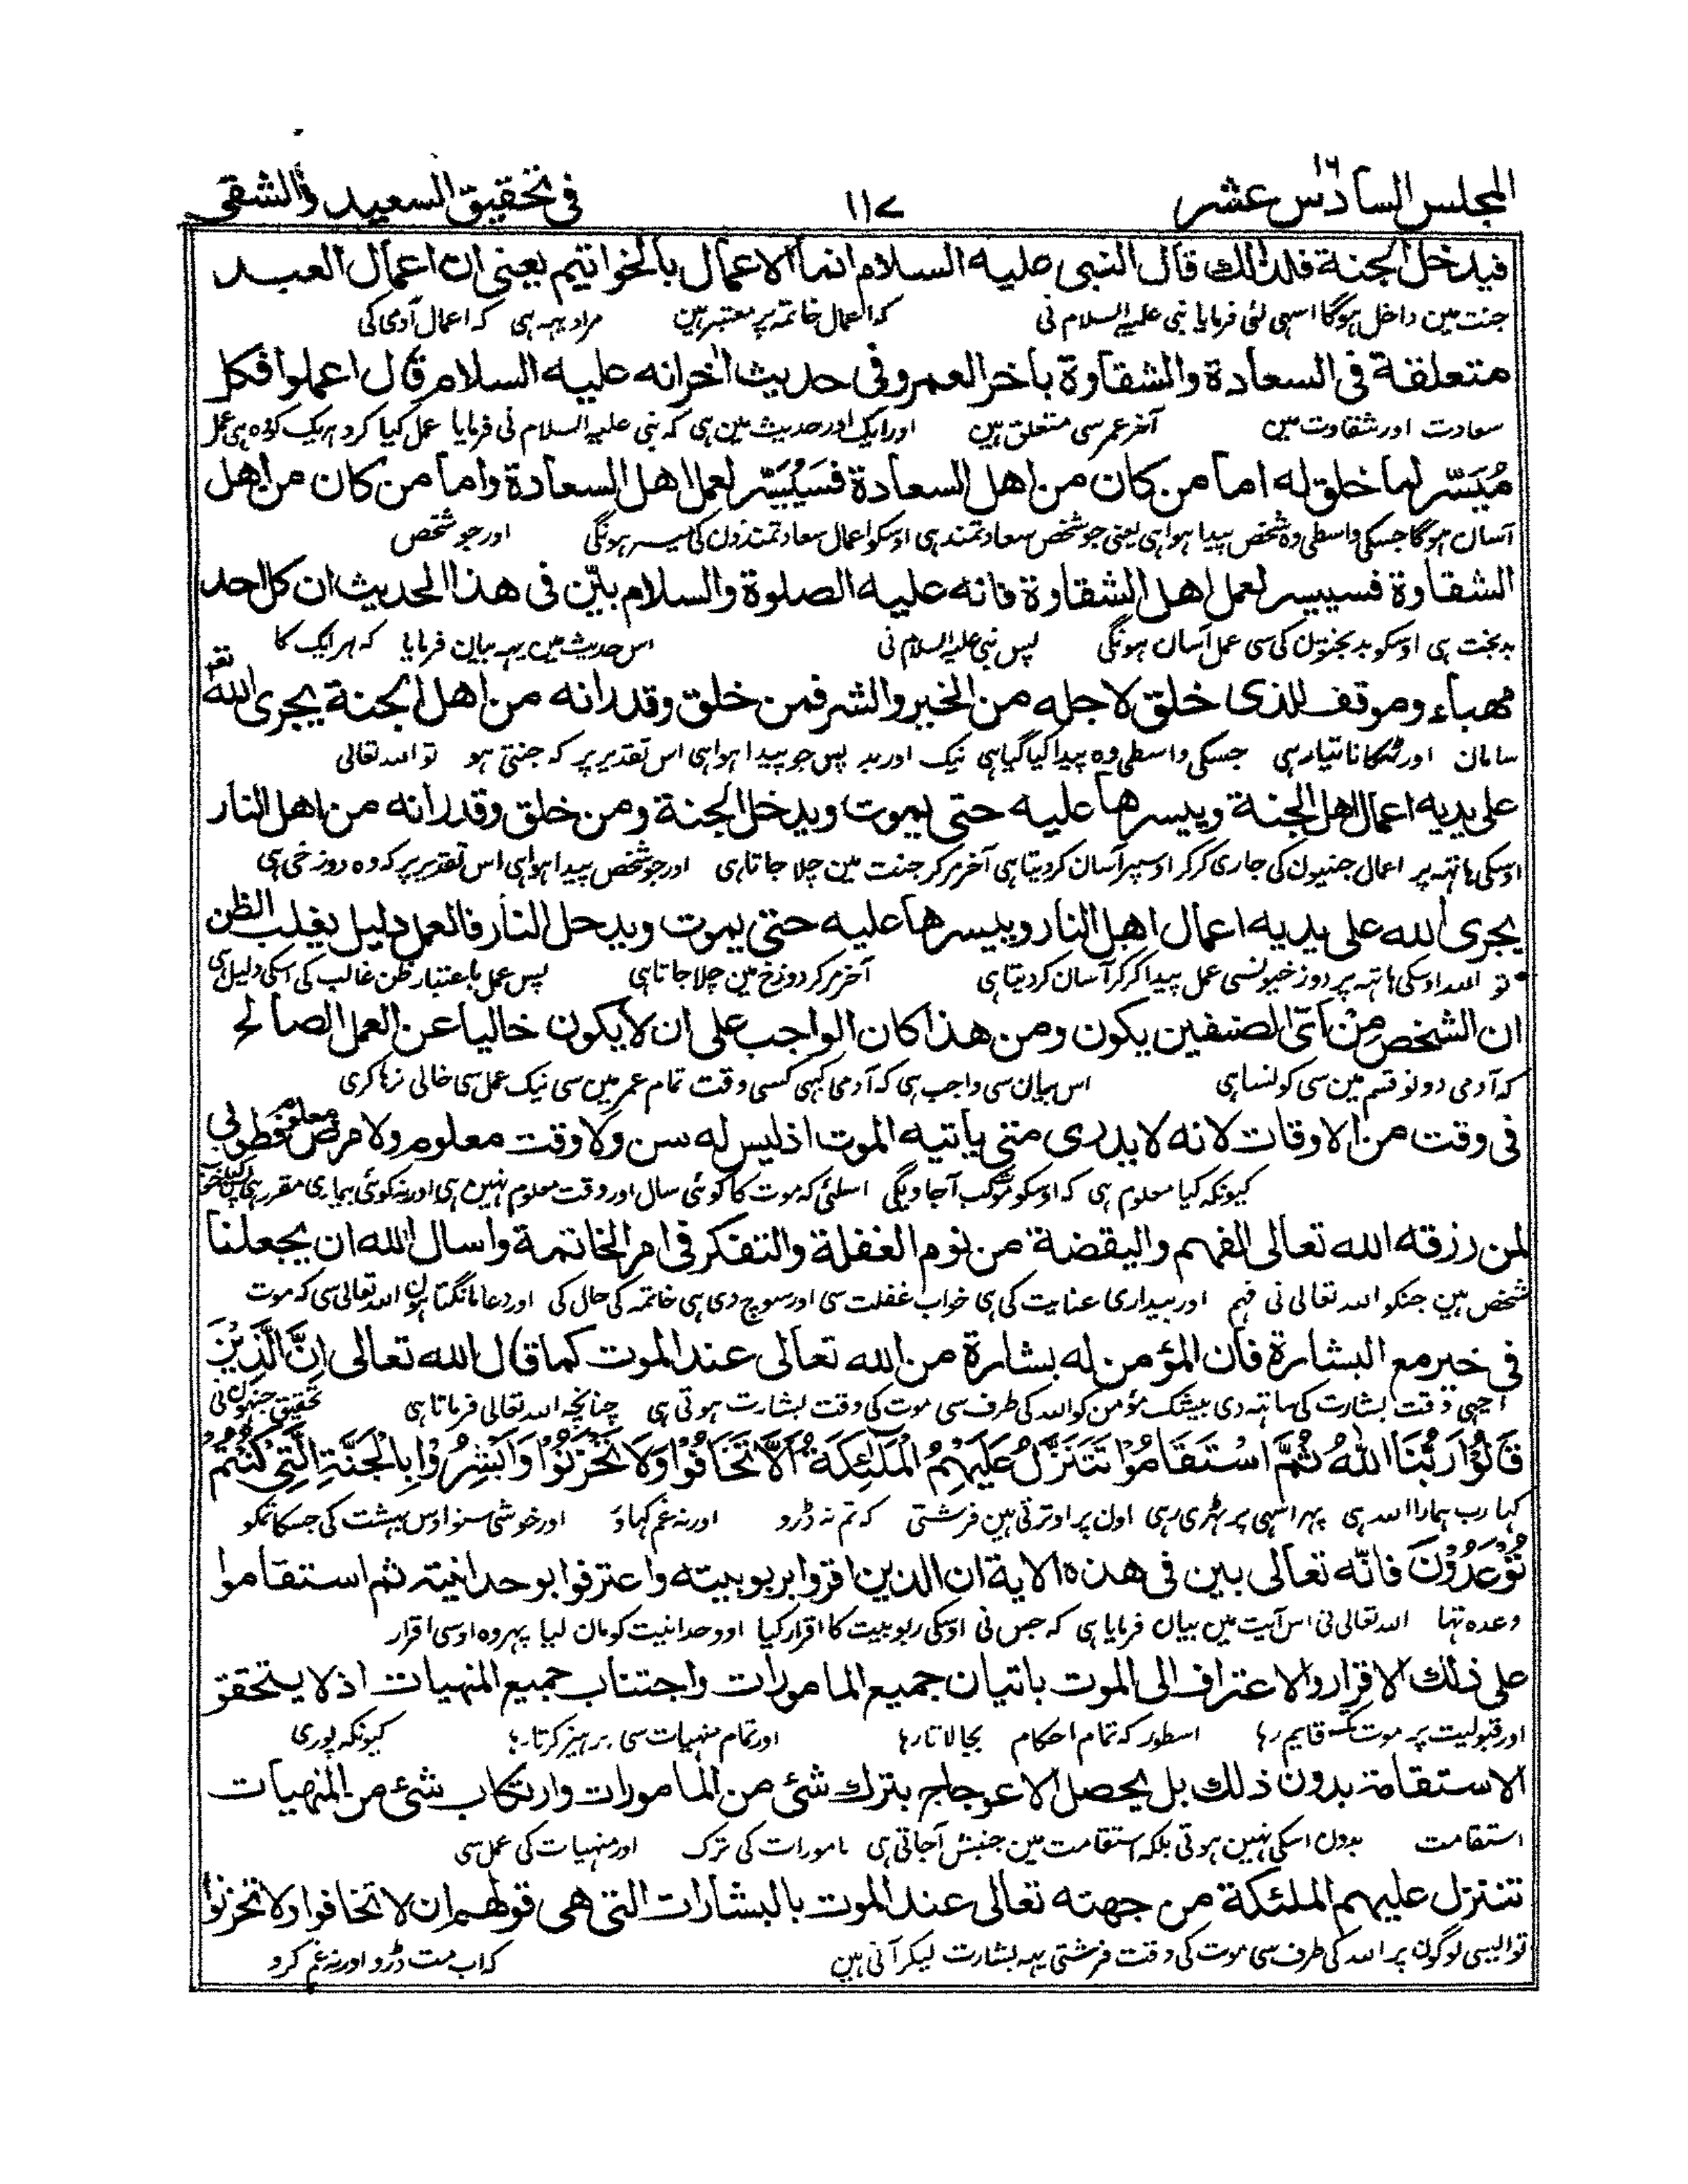 المجلس السادس عشر ١٦
١١٧
فى تحقيق السعيد والشقى
فيدخل الجنة فلذلك قال النبى عليه السلام انما الاعمال بالخواتيم يعنى ان اعمال العبد
جنت مين داخل ہوگا اسہی لئی فرمایا نبی علیہ السلام نی کہ اعمال خاتمہ پر معتبر ہین مراد یہہ ہی کہ اعمال آدمی کی
متعلقة فى السعادة والشقاوة باخر العمر وفى حديث اخر انه عليه السلام قال اعملوا فكل
سعادت اور شقاوت مین آخر عمر سی متعلق ہین اور ایک اور حدیث مین ہی کہ نبی علیہ السلام نی فرمایا عمل کیا کرو ہر یک کو وہ ہی عمل
مُيَسّر لما خلق له اما من كان من اهل السعادة فسَيُيَسّر لعمل اهل السعادة واما من كان من اهل
آسان ہوگا جسکی واسطی وہ شخص پیدا ہوا ہی یعنی جو شخص سعادتمند ہی اوسکو اعمال سعادتمندون کی میسر ہونگی اور جو شخص
الشقاوة فسييسر لعمل اهل الشقاوة فانه عليه الصلوة والسلام بيّن فى هذا الحديث ان كل احد
بدبخت ہی اوسکو بدبختون کی سی عمل آسان ہونگی پس نبی علیہ السلام نی اس حدیث مین یہہ بیان فرمایا کہ ہر ایک کا
مهياء وموقف للذى خلق لاجله من الخير والشر فمن خلق وقدر انه من اهل الجنة يجرى الله
سامان اور ٹھکانا تیار ہی جسکی واسطی وہ پیدا کیا گیا ہی نیک اور بد پس جو پیدا ہوا ہی اس تقدیر پر کہ جنتی ہو تو اللہ تعالی
على يديه اعمال اهل الجنة وييسرها عليه حتى يموت ويدخل الجنة ومن خلق وقدر انه من اهل النار
اوسکی ہاتہہ پر اعمال جنتیون کی جاری کرکر اوسپر آسان کردیتا ہی آخر مرکر جنت مین چلا جاتا ہی اور جو شخص پیدا ہوا ہی اس تقدیر پر کہ وہ دوزخی ہی
يجرى الله على يديه اعمال اهل النار وييسرها عليه حتى يموت ويدخل النار فالعمل دليل يغلب الظن
تو اللہ اوسکی ہاتہہ پر دوزخیونسی عمل پیدا کرکر آسان کردیتا ہی آخر مرکر دوزخ مین چلا جاتا ہی پس عمل باعتبار ظن غالب کی اسکی دلیل ہی
ان الشخص مِنْ اَىّ الصنفين يكون ومن هذا كان الواجب على ان لا يكون خاليا عن العمل الصالح
کہ آدمی دونو قسم مین سی کونسا ہی اس بیان سی واجب ہی کہ آدمی کبھی کسی وقت تمام عمر مین سی نیک عمل سی خالی نرہا کری
فى وقت من الاوقات لانه لا يدرى متى ياتيه الموت اذ ليس له سن ولا وقت معلوم ولا مرض معلوم فطوبى
کیونکہ کیا معلوم ہی کہ اوسکو موت کب آجاویگی اسلئی کہ موت کا کوئی سال اور وقت معلوم نہین ہی اور نہ کوئی بیماری مقرر ہی
لمن رزقه الله تعالى الفهم واليقضة من نوم الغفلة والتفكر فى امر الخاتمة واسال الله ان يجعلنا
شخص ہین جنکو اللہ تعالی نی فہم اور بیداری عنایت کی ہی خواب غفلت سی اور سوچ دی ہی خاتمہ کی حال کی اور دعا مانگتا ہون اللہ تعالی سی کہ موت
فى خير مع البشارة فان المؤمن له بشارة من الله تعالى عند الموت كما قال الله تعالى اِنَّ الَّذِيْنَ
اچہی وقت بشارت کی ساتہہ دی بیشک مؤمن کو اللہ کی طرف سی موت کی وقت بشارت ہوتی ہی چنانچہ اللہ تعالی فرماتا ہی تحقیق جنہون نی
قَالُوْا رَبُّنَا اللهُ ثُمَّ اسْتَقَامُوْا تَتَنَزَّلُ عَلَيْهِمُ الْمَلٰئِكَةُ اَلَّا تَخَافُوْا وَلَا تَحْزَنُوْا وَاَبْشِرُوْا بِالْجَنَّةِ الَّتِىْ كُنْتُمْ
کہا رب ہمارا اللہ ہی پہر اسہی پر ٹہری رہی اون پر اوترتی ہین فرشتی کہ تم نہ ڈرو اور نہ غم کہاؤ اور خوشی سنو اوس بہشت کی جسکا تمکو
تُوْعَدُوْنَ فانّه تعالى بين فى هذه الاية ان الذين اقروا بربوبيته واعترفوا بوحدانيته ثم استقاموا
وعدہ تہا اللہ تعالی نی اس آیت مین بیان فرمایا ہی کہ جس نی اوسکی ربوبیت کا اقرار کیا اور وحدانیت کو مان لیا پہر وہ اوسی اقرار
على ذلك الاقرار والاعتراف الى الموت باتيان جميع المامورات واجتناب جميع المنهيات اذ لا يتحقق
اور قبولیت پر موت تک قایم رہا اسطور کہ تمام احکام بجا لاتا رہا اور تمام منہیات سی پرہیز کرتا رہا کیونکہ پوری
الاستقامة بدون ذلك بل يحصل الاعوجاج بترك شئ من المامورات وارتكاب شئ من المنهيات
استقامت بدون اسکی نہین ہوتی بلکہ استقامت مین جنبش آجاتی ہی مامورات کی ترک اور منہیات کی عمل سی
تتنزل عليهم الملئكة من جهته تعالى عند الموت بالبشارات التى هى قولهم ان لا تخافوا ولا تحزنوا
تو ایسی لوگون پر اللہ کی طرف سی موت کی وقت فرشتی یہہ بشارت لیکر آتی ہین کہ اب مت ڈرو اور نہ غم کرو